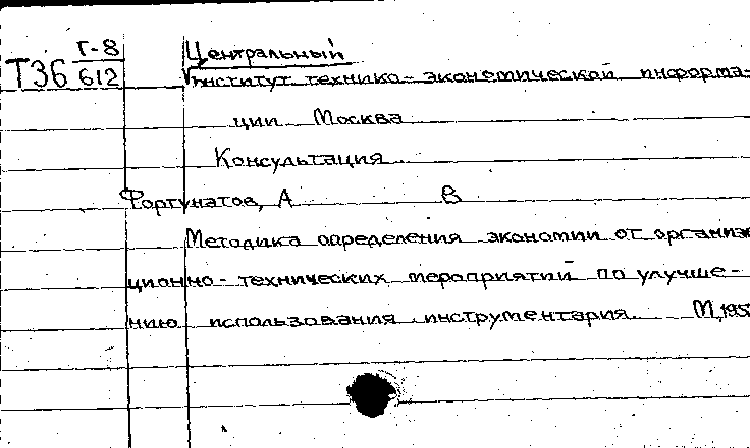 Г-8
Т36 612
Центральный
институт технико-экономической информа-
ции Москва
Консультация
Фортунатов, А В
Методика определения экономии от организа
ционно-технических мероприятий по улучше-
нию использования инструментария. М, 195